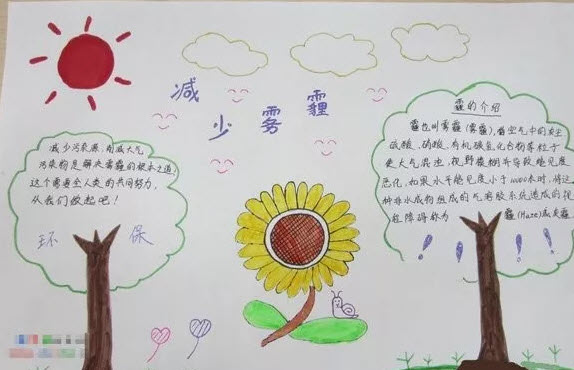 减少雾霾
减少污染源，削减大气
污染物是解决雾霾的根本之道，
这个需要全人类的共同努力，
从我们做起吧！
环 保
霾的介绍
霾也叫雾霾（雾霾），指空气中的灰尘
硫酸、硝酸、有机碳氢化合物等粒子
使大气混浊，视野模糊并导致能见度
恶化，如果水平能见度小于10000米时，将这
种非水成物组成的气溶胶系统造成的视
程障碍称为 霾(Haze)或灰霾
！！！！